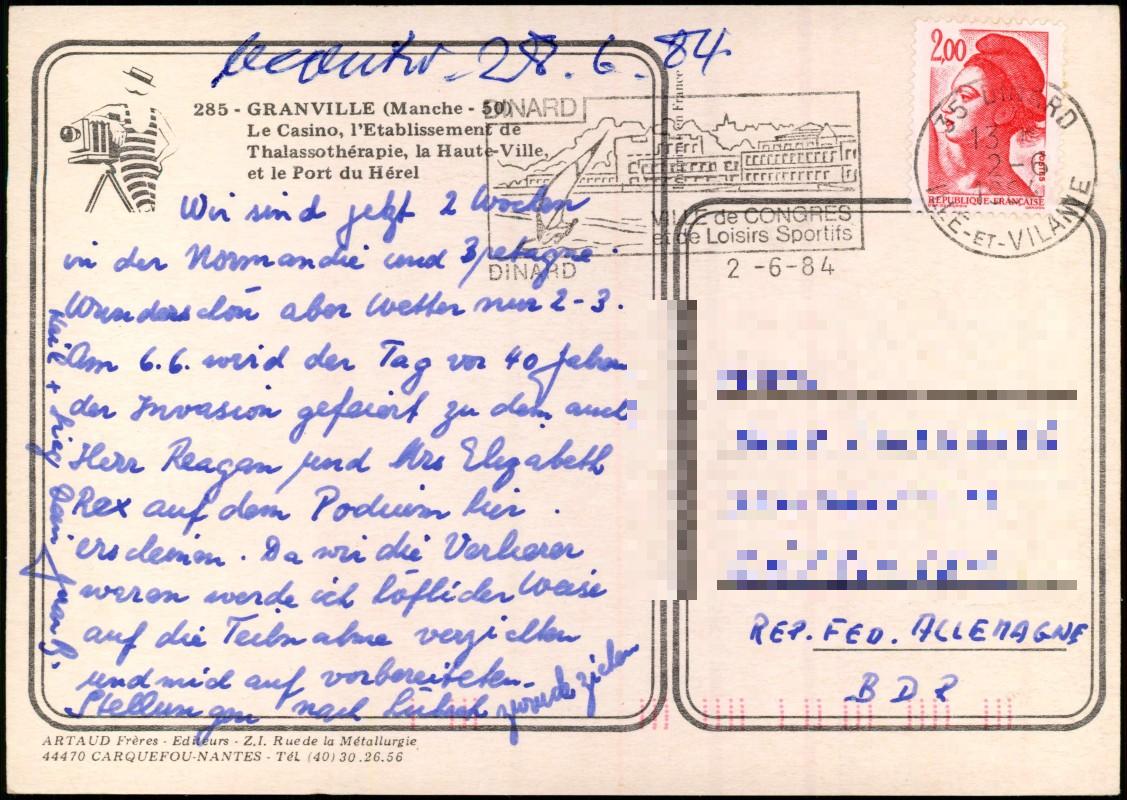 28.6.84
285 - GRANVILLE (Manche - 50)
Le Casino, l'Etablissement de
Thalassothérapie, la Haute-Ville,
et le Port du Hérel
Wir sind jetzt 2 Wochen
in der Normandie und Bretagne.
Wunderschön aber Wetter nur 2-3.
Am 6.6. wird der Tag vor 40 Jahren
der Invasion gefeiert zu dem auch
Herr Reagan und Mrs Elizabeth
Rex auf dem Podium hier
erscheinen. Da wir die Verlierer
waren werde ich höflicher Weise
auf die Teilnahme verzichten
und mich auf vorbereiteten
Stellungen nach zurück ziehen
Dein
DINARD
VILLE de CONGRES
et de Loisirs Sportifs
DINARD
2 -6-84
2,00
POSTES
REPUBLIQUE FRANÇAISE
35 DINARD
13
2-6
ILLE-ET-VILAINE
en France
REP. FED. ALLEMAGNE
BDR
ARTAUD Frères - Editeurs - Z.I. Rue de la Métallurgie
44470 CARQUEFOU-NANTES - Tél. (40) 30.26.56